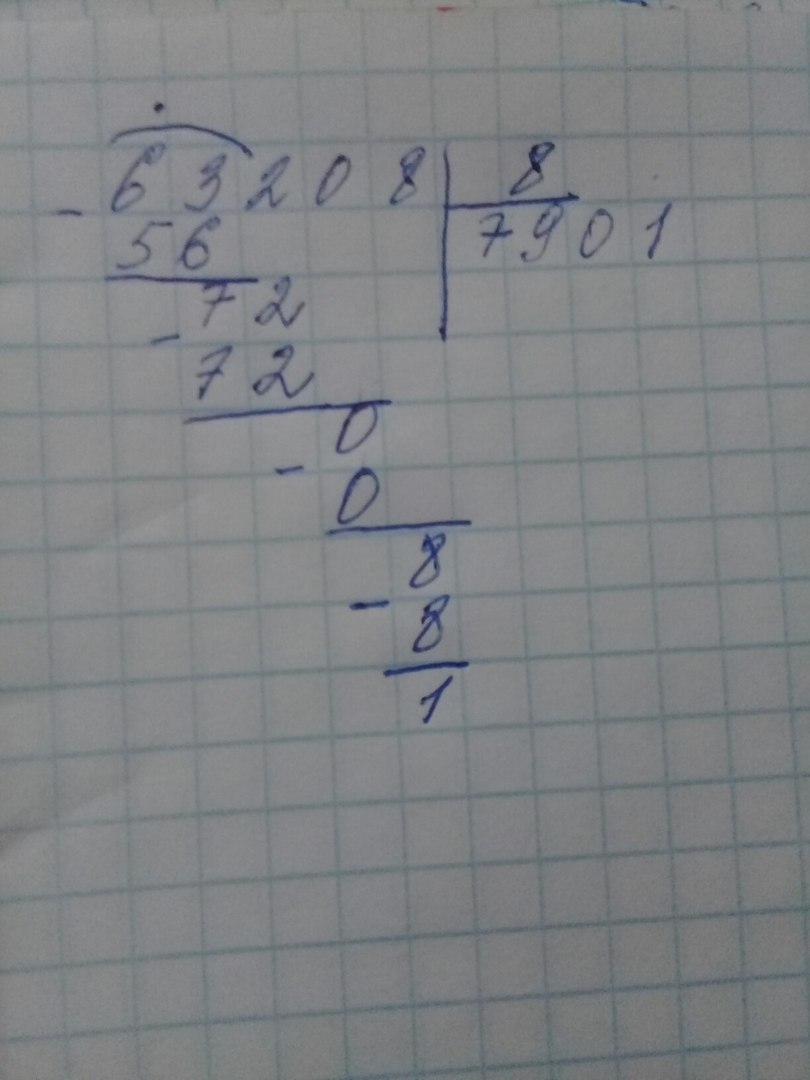 - 63208 | 8
56 7901
72
- 72
0
- 0
8
- 8
1